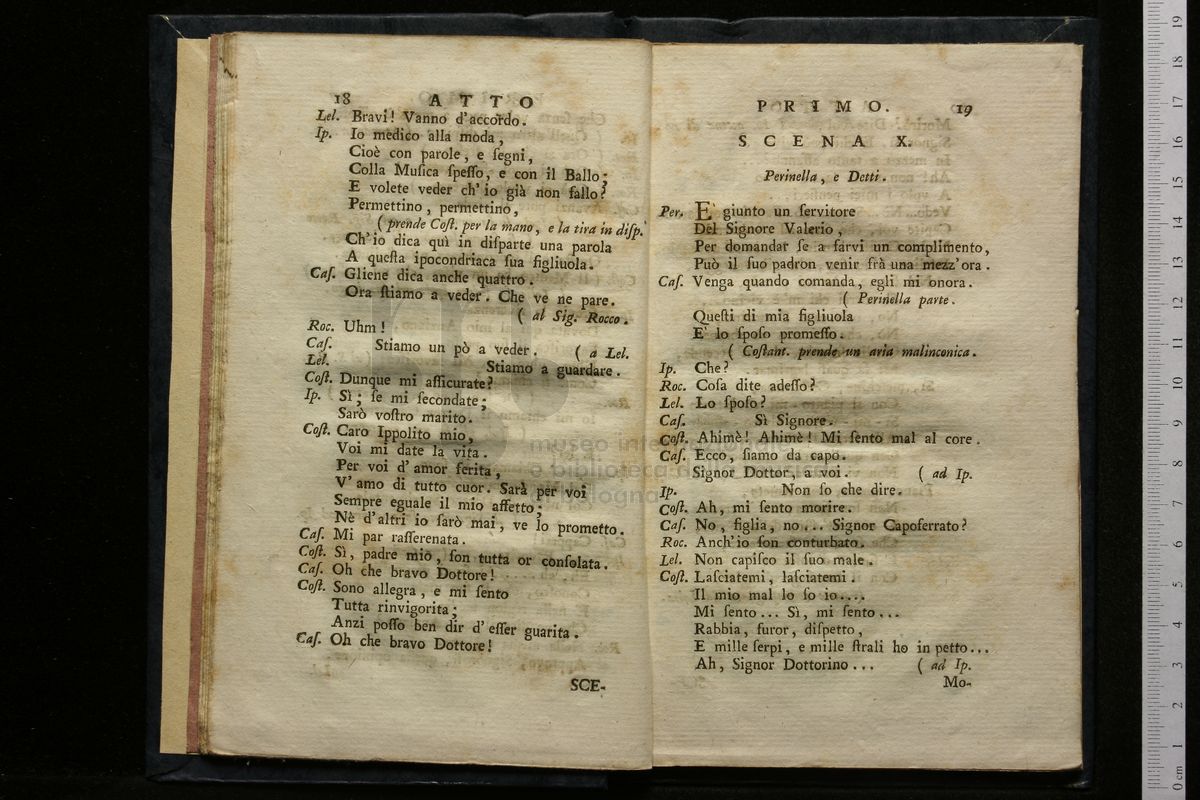 18 ATTO
Lel. Bravi! Vanno d'accordo.
Ip. Io medico alla moda,
Cioè con parole, e ſegni,
Colla Muſica ſpeſſo, e con il Ballo;
E volete veder ch'io già non fallo?
Permettino, permettino,
( prende Coſt. per la mano, e la tira in diſp.
Ch'io dica quì in diſparte una parola
A queſta ipocondriaca ſua figliuola.
Caſ. Gliene dica anche quattro.
Ora ſtiamo a veder. Che ve ne pare.
( al Sig. Rocco.
Roc. Uhm!
Caſ. Stiamo un pò a veder. ( a Lel.
Lel. Stiamo a guardare.
Coſt. Dunque mi aſſicurate?
Ip. Sì; ſe mi ſecondate;
Sarò voſtro marito.
Coſt. Caro Ippolito mio,
Voi mi date la vita.
Per voi d'amor ferita,
V'amo di tutto cuor. Sarà per voi
Sempre eguale il mio affetto;
Nè d'altri io ſarò mai, ve lo prometto.
Caſ. Mi par raſſerenata.
Coſt. Sì, padre mio, ſon tutta or conſolata.
Caſ. Oh che bravo Dottore!
Coſt. Sono allegra, e mi ſento
Tutta rinvigorita;
Anzi poſſo ben dir d'eſſer guarita.
Caſ. Oh che bravo Dottore!
SCE-
PRIMO. 19
SCENA X.
Perinella, e Detti.
Per. E' giunto un ſervitore
Del Signore Valerio,
Per domandar ſe a farvi un complimento,
Può il ſuo padron venir frà una mezz'ora.
Caſ. Venga quando comanda, egli mi onora.
( Perinella parte.
Queſti di mia figliuola
E' lo ſpoſo promeſſo.
( Coſtant. prende un aria malinconica.
Ip. Che?
Roc. Coſa dite adeſſo?
Lel. Lo ſpoſo?
Caſ. Sì Signore.
Coſt. Ahimè! Ahimè! Mi ſento mal al core.
Caſ. Ecco, ſiamo da capo.
Signor Dottor, a voi. ( ad Ip.
Ip. Non ſo che dire.
Coſt. Ah, mi ſento morire.
Caſ. No, figlia, no... Signor Capoferrato?
Roc. Anch'io ſon conturbato.
Lel. Non capiſco il ſuo male.
Coſt. Laſciatemi, laſciatemi.
Il mio mal lo ſo io....
Mi ſento... Sì, mi ſento...
Rabbia, furor, diſpetto,
E mille ſerpi, e mille ſtrali ho in petto...
Ah, Signor Dottorino... ( ad Ip.
Mo-
museo internazionale
e biblioteca della musica
bologna
0 cm 1 2 3 4 5 6 7 8 9 10 11 12 13 14 15 16 17 18 19